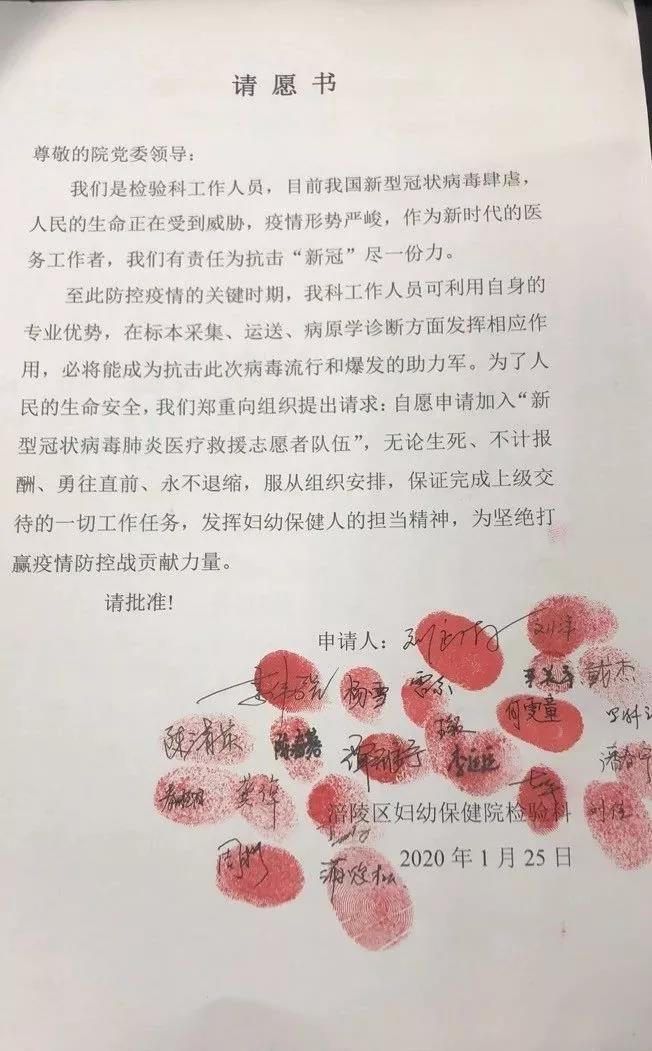 请愿书
尊敬的院党委领导：
我们是检验科工作人员，目前我国新型冠状病毒肆虐，
人民的生命正在受到威胁，疫情形势严峻，作为新时代的医
务工作者，我们有责任为抗击“新冠”尽一份力。
至此防控疫情的关键时期，我科工作人员可利用自身的
专业优势，在标本采集、运送、病原学诊断方面发挥相应作
用，必将能成为抗击此次病毒流行和爆发的助力军。为了人
民的生命安全，我们郑重向组织提出请求：自愿申请加入“新
型冠状病毒肺炎医疗救援志愿者队伍”，无论生死、不计报
酬、勇往直前、永不退缩，服从组织安排，保证完成上级交
待的一切工作任务，发挥妇幼保健人的担当精神，为坚绝打
赢疫情防控战贡献力量。
请批准!
申请人：
杨雪 戴杰
何雯童
涪陵区妇幼保健院检验科
2020年1月25日